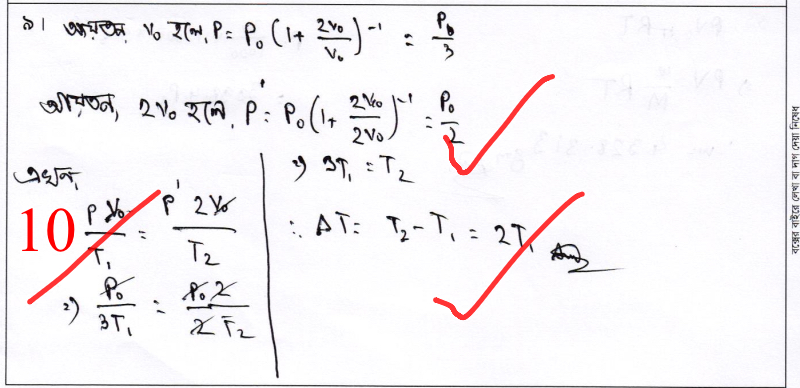 ৯। আয়তন V₀ হলে, P = P₀(1 + 2V₀/V₀)⁻¹ = P₀/3
আয়তন, 2V₀ হলে, P' = P₀(1 + 2V₀/2V₀)⁻¹ = P₀/2
এখন,
10
PV₀/T₁ = P' 2V₀/T₂
⇒ P₀/3T₁ = P₀ 2/2 T₂
⇒ 3T₁ = T₂
∴ ΔT = T₂ - T₁ = 2T₁ Ans
বক্সের বাইরে লেখা বা দাগ দেয়া নিষেধ